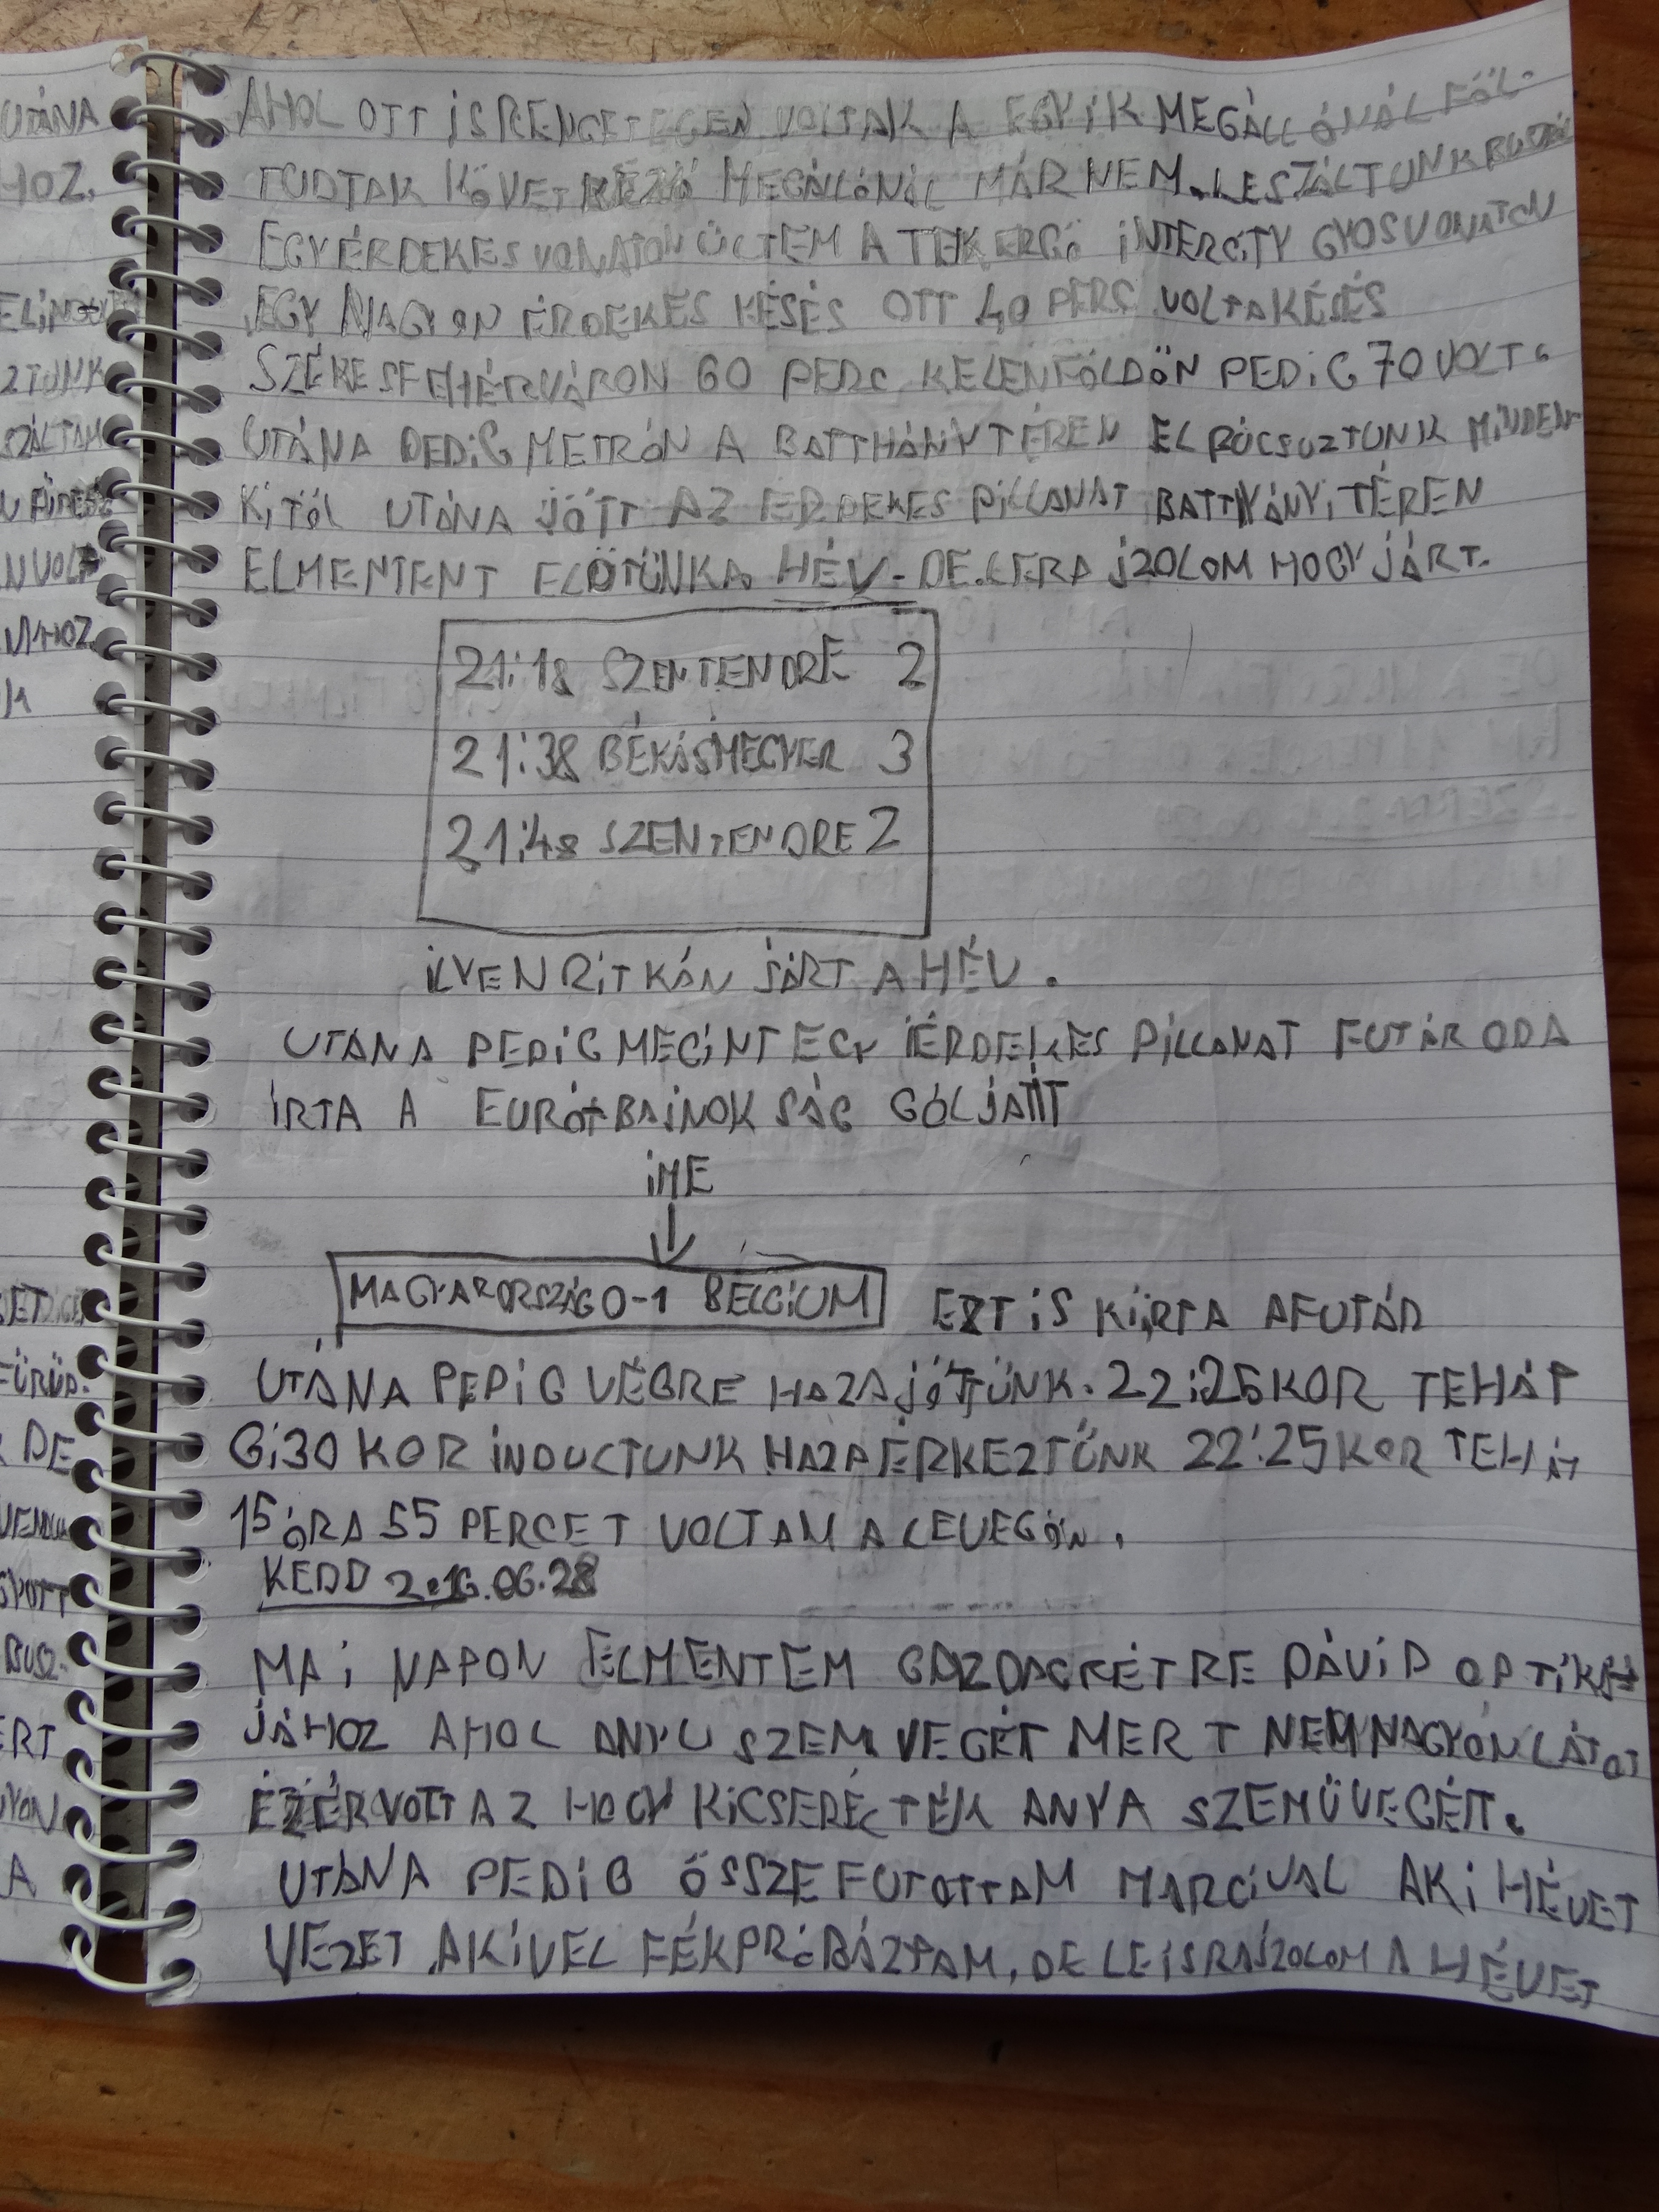 UTÁNA
HOZ.
ZTUNK
SZÁLTAM
N VOLT
VHOZ.
DE
BUSZ-
ERT
A
AHOL OTT IS RENGETEGEN VOLTAK A EGYIK MEGÁLLÓNÁL FÖL-
TUDTAK KÖVETKEZŐ MEGÁLLÓNÁL MÁR NEM. LESZÁLTUNK
EGY ÉRDEKES VONATON ÜLTEM A TEKERGŐ INTERCITY GYOSVONATON
EGY NAGYON ÉRDEKES KÉSÉS OTT 40 PERC VOLT A KÉSÉS
SZÉKESFEHÉRVÁRON 60 PERC KELENFÖLDÖN PEDIG 70 VOLT.
UTÁNA PEDIG METRÓN A BATTHÁNY TÉREN ELBÚCSUZTUNK MINDEN-
KITŐL UTÁNA JÖTT AZ ÉRDEKES PILLANAT BATTHYÁNYI TÉREN
ELMENTENT ELŐTÜNK A HÉV- DE LERAJZOLOM HOGY JÁRT.
21:18 SZENTENDRE 2
21:38 BÉKÁSMEGYER 3
21:48 SZENTENDRE 2
ILYEN RITKÁN JÁRT A HÉV.
UTANA PEDIG MEGINT EGY ÉRDEKES PILLANAT FUTÁR ODA
ÍRTA A EURÓBAJNOKSÁG GÓLJAIT
IME
MAGYARORSZÁG 0-1 BELGIUM
EZT IS KIÍRTA A FUTÁR
UTÁNA PEDIG VÉGRE HAZA JÖTTÜNK. 22:25 KOR TEHÁT
6:30 KOR INDULTUNK HAZAÉRKEZTÜNK 22:25 KOR TEHÁT
15 ÓRA 55 PERCET VOLTAM A LEVEGŐN.
KEDD 2016.06.28
MAI NAPON ELMENTEM GAZDAGRÉTRE DÁVID OPTIKÁ-
JÁHOZ AHOL ANYU SZEMVEGÉT MERT NEM NAGYON LÁTOT
EZÉR VOLT AZ HOGY KICSERÉLTÉK ANYA SZEMÜVEGÉT.
UTÁNA PEDIG ÖSSZEFUTOTTAM MARCIVAL AKI HÉVET
VEZET AKIVEL FÉKPRÓBÁZTAM. DE LE IS RAJZOLOM A HÉVET